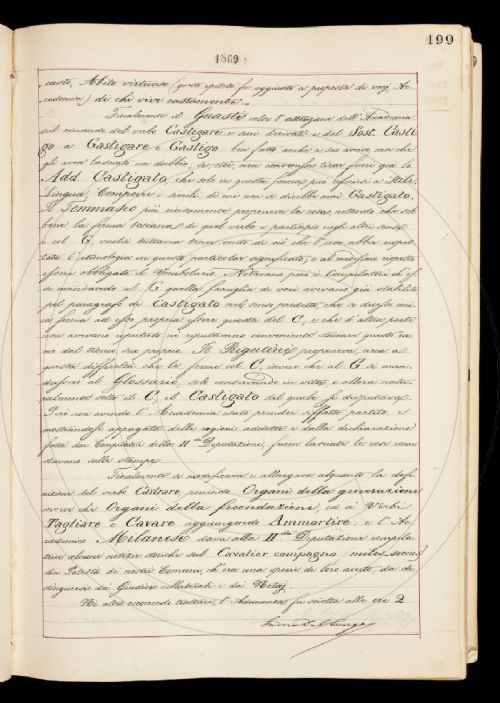 199
1869
casto, Abito virtuoso (questo epiteto fu aggiunto a proposta di varj Ac-
cademici) di chi vive castamente.
Finalmente il Guasti volse l'attenzione dell'Accademia
sul rimando del verbo Castigare e suoi derivati e del Sost. Casti
go a Gastigare e Gastigo: ben fatto anche a suo avviso, ma che
gli avea lasciato un dubbio, se cioè, non convenisse tirar fuori qua le
Add. Castigato, che solo in questa forma può riferirsi a Stile,
Lingua, Comporre e simile, di cui non si direbbe mai Gastigato.
Il Tommaséo più ricisamente proponeva la cosa, notando che seb
bene la forma toscana di quel verbo e participio negli altri sensi
è col G, vuolsi tuttavia tener conto di ciò che l'uso abbia rispet
tata l'etimologia in questo particolar significato; e al medesimo rispetto
essere obbligato il Vocabolario. Notavano però i Compilatori che es
si mandando al G questa famiglia di voci avevano già stabilito
pel paragrafo di Castigato nel senso predetto, che si dicesse uni
ca forma ad esso propria essere questa del C, e che d'altra parte
non avevano reputato nè reputavano conveniente staccare questo ra
mo dal tronco suo proprio. Il Rigutini proponeva, circa a
questa difficoltà che le forme del C, invece che al G si man
dassero al Glossario, solo conservando in vita, e allora natu
ralmente sotto il C, il Castigato del quale si disputava.
Però non avendo l'Accademia usato prender siffatto partito, e
mostrandosi appagata delle ragioni addotte e dalla dichiarazione
fatta dai Compilatori della IIda Deputazione, furon lasciate le cose come
stavano sulle stampe.
Finalmente si modificava e allargava alquanto la defi-
nizione del verbo Castrare, ponendo Organi della generazione
invece che Organi della fecondazione, ed ai Verbi
Tagliare e Cavare aggiungendo Ammortire: e l'Ac-
cademico Milanesi dava alla IIda Deputazione compila-
trice alcune notizie storiche sul Cavalier compagno
dei Potestà dei nostri Comuni, ch'era una specie di loro ajuto, da di-
stinguersi dai Giudici collaterali e dai Notaj.
Nè altro occorrendo trattare, l'Adunanza fu sciolta alle ore 2